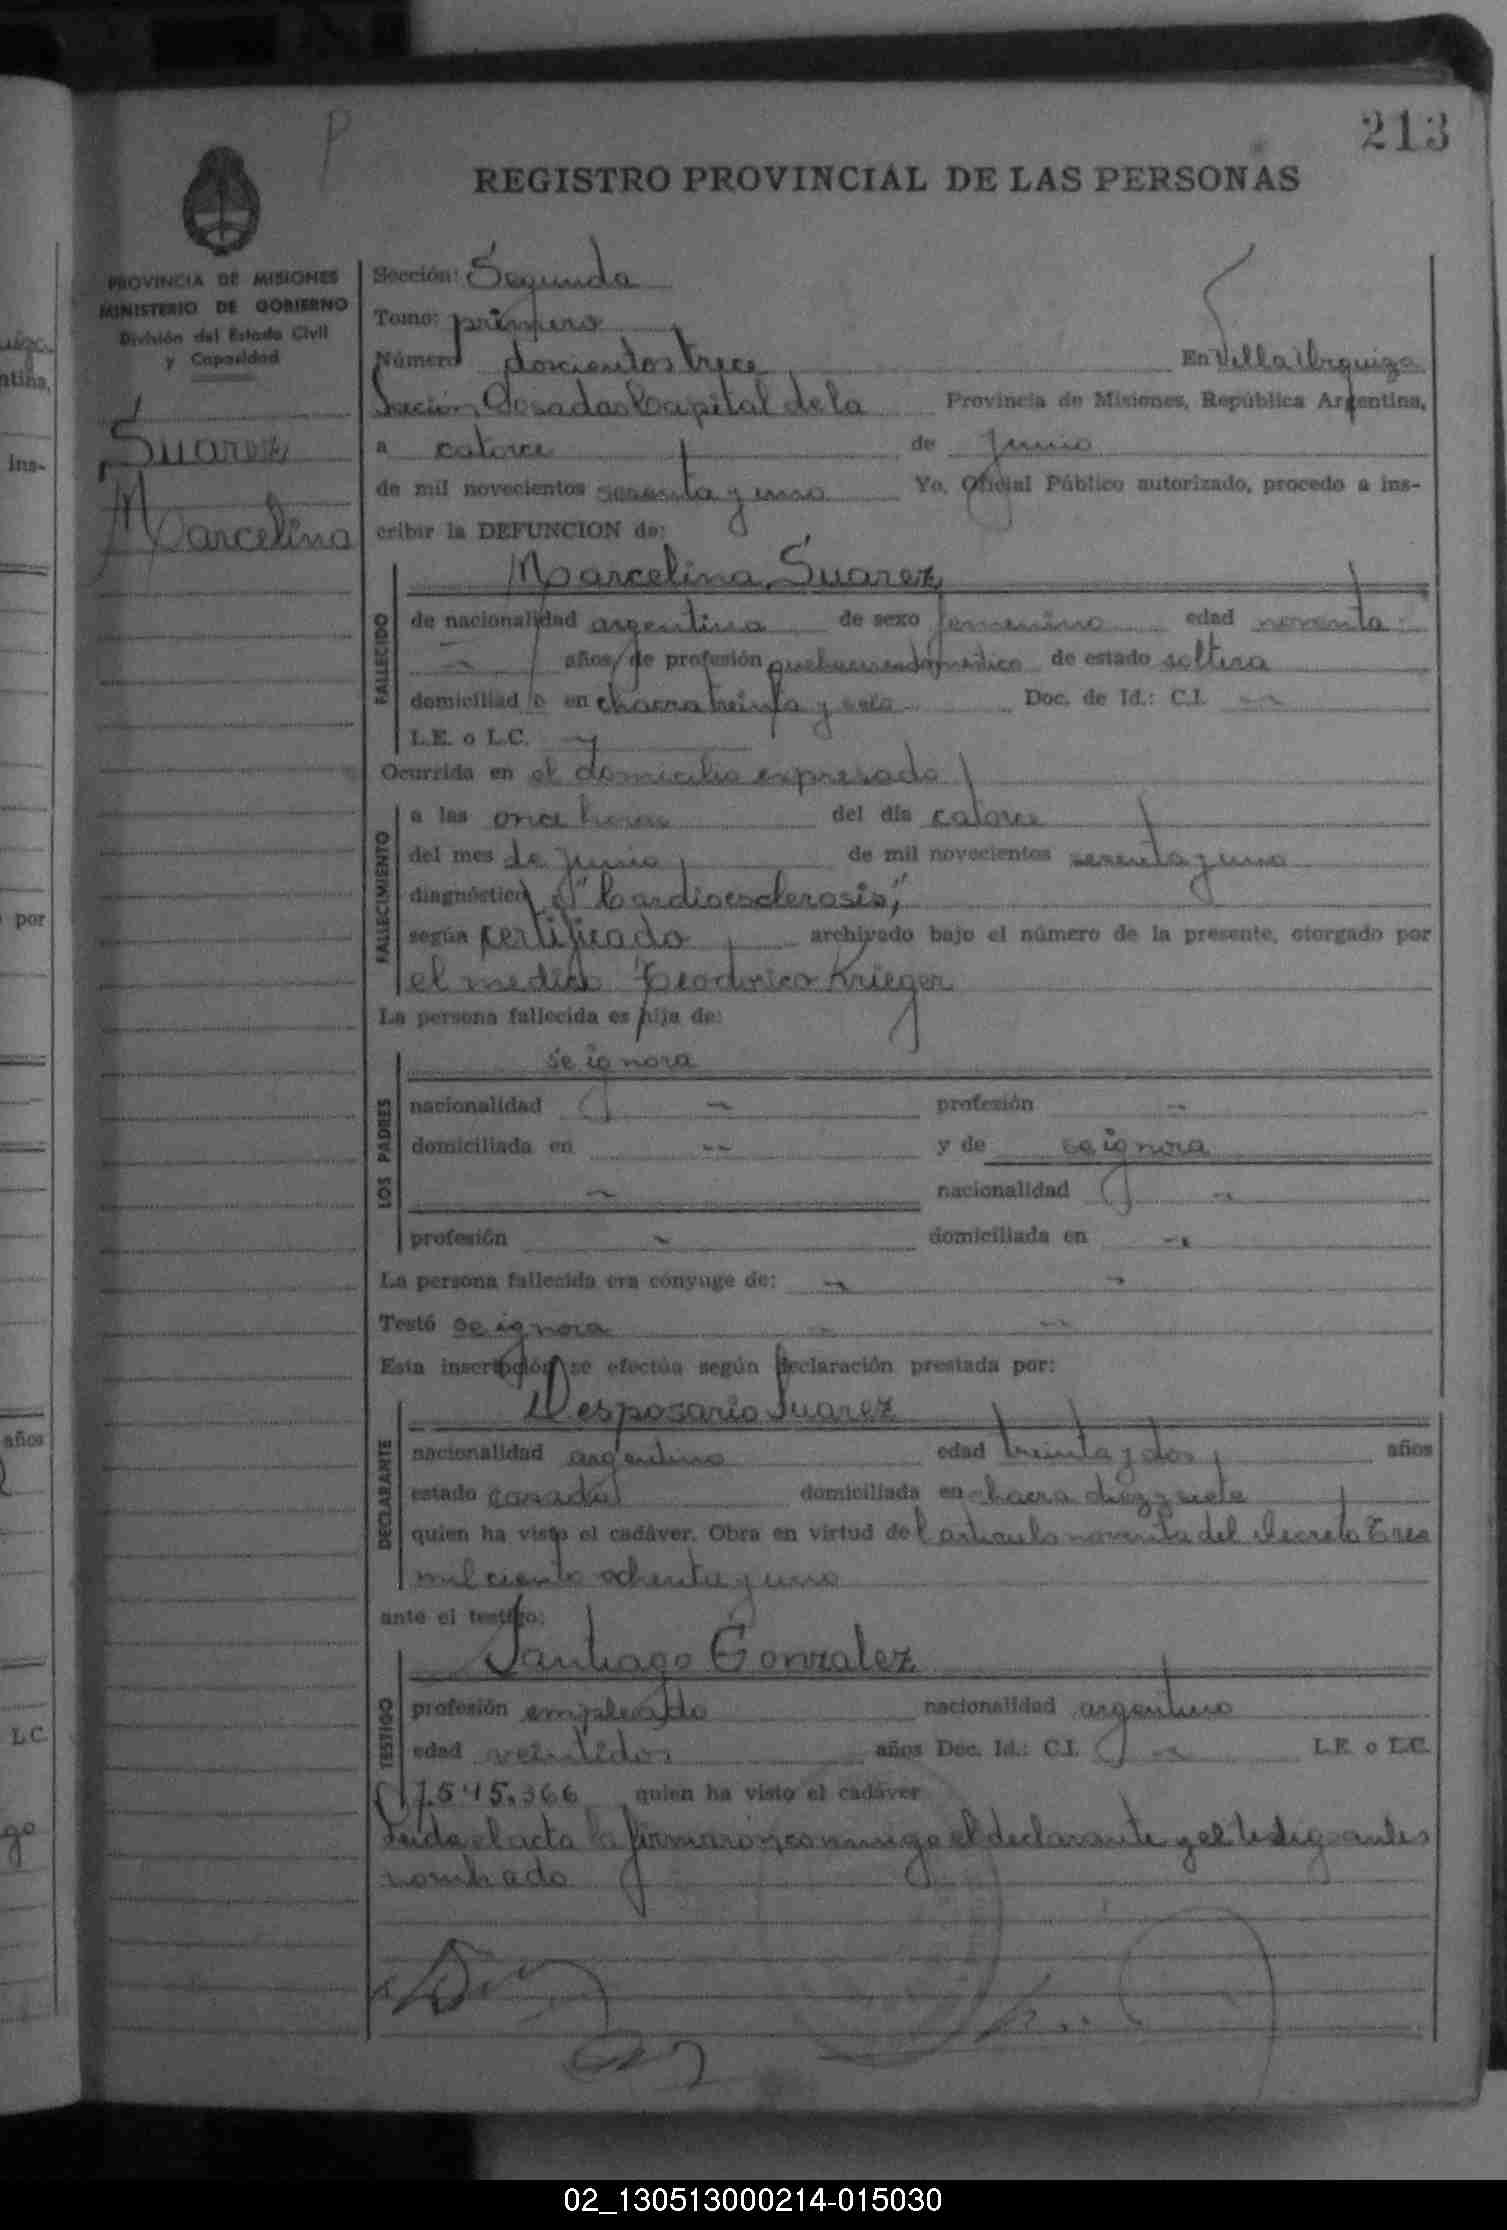 213
P
REGISTRO PROVINCIAL DE LAS PERSONAS
PROVINCIA DE MISIONES
MINISTERIO DE GOBIERNO
División del Estado Civil
y Capacidad
Suarez
Marcelina
Sección: Segunda
Tomo: primero
Número doscientos trece En Villa Urquiza
Sección Posadas Capital de la Provincia de Misiones, República Argentina,
a catorce de junio
de mil novecientos sesenta y uno Yo, Oficial Público autorizado, procedo a ins-
cribir la DEFUNCION de:
Marcelina Suarez
FALLECIDO
de nacionalidad argentina de sexo femenino edad noventa
años, de profesión de estado soltera
domiciliad o en chacra treinta y seis Doc. de Id.: C.I.
L.E. o L.C.
Ocurrida en el domicilio expresado
FALLECIMIENTO
a las once horas del día catorce
del mes de junio de mil novecientos sesenta y uno
diagnóstico "Cardioesclerosis",
según certificado archivado bajo el número de la presente, otorgado por
el medico Teodorico Krieger
La persona fallecida es hija de:
LOS PADRES
se ignora
nacionalidad profesión
domiciliada en y de se ignora
nacionalidad
profesión domiciliada en
La persona fallecida era cónyuge de:
Testó se ignora
Esta inscripción se efectúa según declaración prestada por:
DECLARANTE
Desposorio Suarez
nacionalidad argentino edad treinta y dos años
estado casado domiciliada en chacra diez y siete
quien ha visto el cadáver. Obra en virtud del articulo noventa del decreto tres
mil ciento ochenta y uno
ante el testigo:
TESTIGO
Santiago Gonzalez
profesión empleado nacionalidad argentino
edad veintidos años Doc. Id.: C.I. L.E. o L.C.
7.545.366 quien ha visto el cadáver
Leida el acta la firmaron conmigo el declarante y el testigo antes
nombrado
años
ins-
por
L.C.
go
02_130513000214-015030